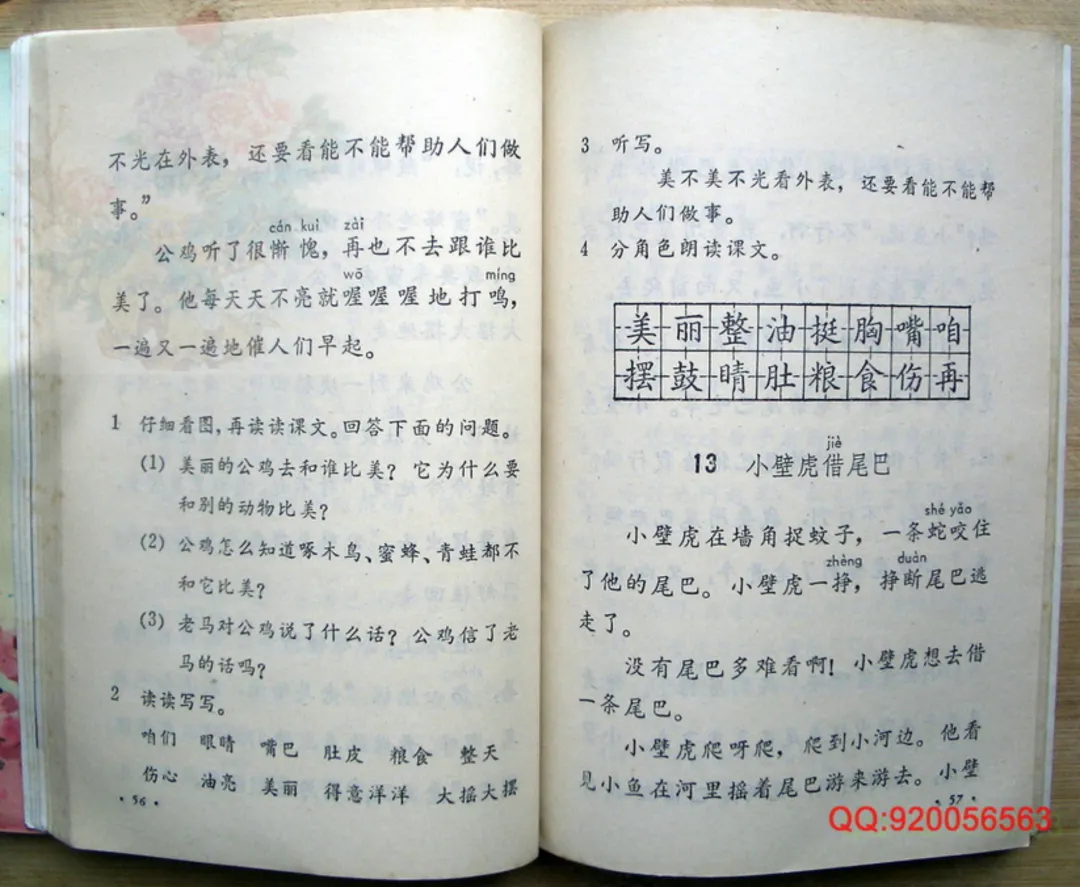 不光在外表，还要看能不能帮助人们做
事。”
cán kuì zài
公鸡听了很惭愧，再也不去跟谁比
wō míng
美了。他每天天不亮就喔喔喔地打鸣，
一遍又一遍地催人们早起。
1 仔细看图，再读读课文。回答下面的问题。
(1) 美丽的公鸡去和谁比美？它为什么要
和别的动物比美？
(2) 公鸡怎么知道啄木鸟、蜜蜂、青蛙都不
和它比美？
(3) 老马对公鸡说了什么话？公鸡信了老
马的话吗？
2 读读写写。
咱们 眼睛 嘴巴 肚皮 粮食 整天
伤心 油亮 美丽 得意洋洋 大摇大摆
·56·
3 听写。
美不美不光看外表，还要看能不能帮
助人们做事。
4 分角色朗读课文。
美丽整油挺胸嘴咱
摆鼓睛肚粮食伤再
jiè
13 小壁虎借尾巴
shé yǎo
小壁虎在墙角捉蚊子，一条蛇咬住
zhèng duàn
了他的尾巴。小壁虎一挣，挣断尾巴逃
走了。
没有尾巴多难看啊！小壁虎想去借
一条尾巴。
小壁虎爬呀爬，爬到小河边。他看
见小鱼在河里摇着尾巴游来游去。小壁
·57·
QQ:920056563